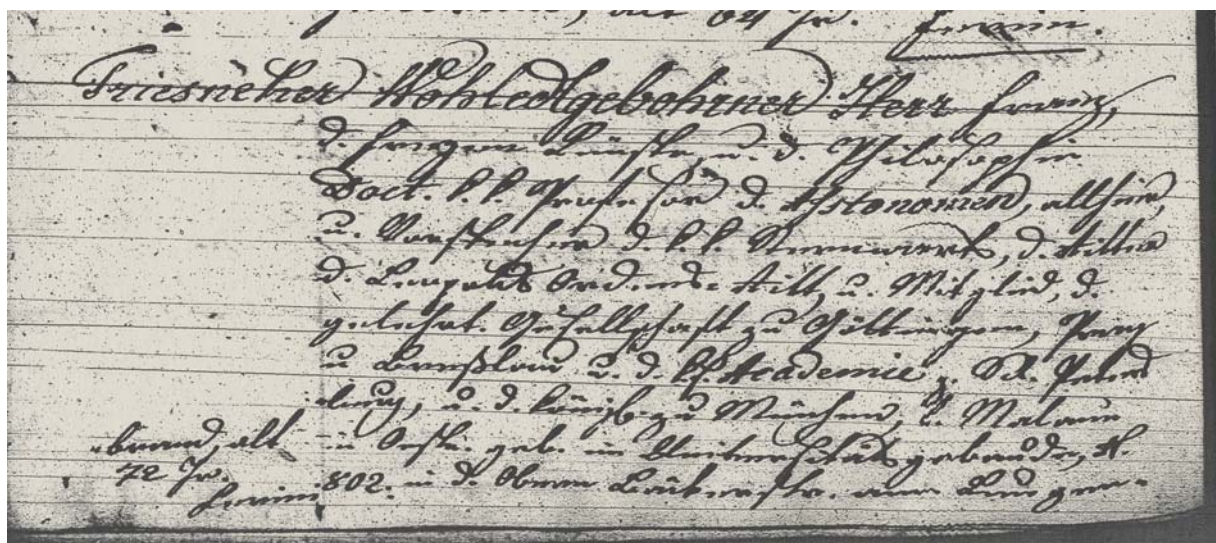 alt 64 Jr.
Triesneker Wohledlgebohrner Herr Franz,
d. freyen Künste u. d. Philosophie
Doct. k. k. Profesor d. Astonomied, allhier,
u. Vorsteher d. k. k. Sternwarte, d. Ritter
d. Leopolds Ordens Ritt, u. Mitglied, d.
gelehrt. Gesellschaft zu Göttingen, Prag
u Breßlau u. d. kk. Academie z. St. Peters
burg, u. d. königl. zu München, v. Mataun
in Oestr. geb. im Universitäts gebaude, N.
802. in d. Obern Bäkerstr. am Lungen-
brand, alt
72 Jr.